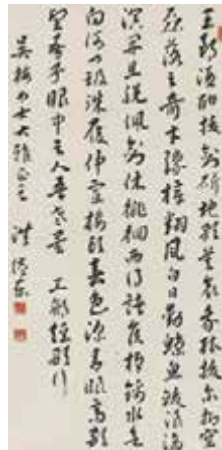 王郎酒酣拔劍斫地歌莫哀我能拔爾抑塞
磊落之奇才豫樟翻風白日動鯨魚跋浪滄
溟開且脫佩劍休徘徊西得諸侯棹錦水欲
向何門趿珠履仲宣樓頭春色深青眼高歌
望吾子眼中之人吾老矣 工部短歌行
士大雅正之 洪